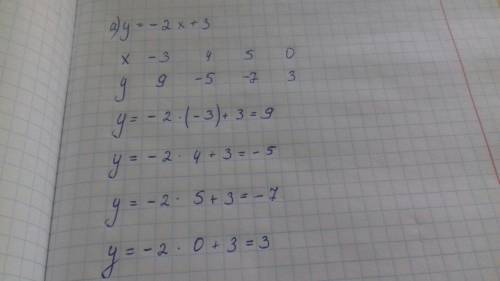 а) y = -2x+3
x -3 4 5 0
y 9 -5 -7 3
y = -2·(-3)+3=9
y = -2·4+3=-5
y = -2·5+3=-7
y = -2·0+3=3